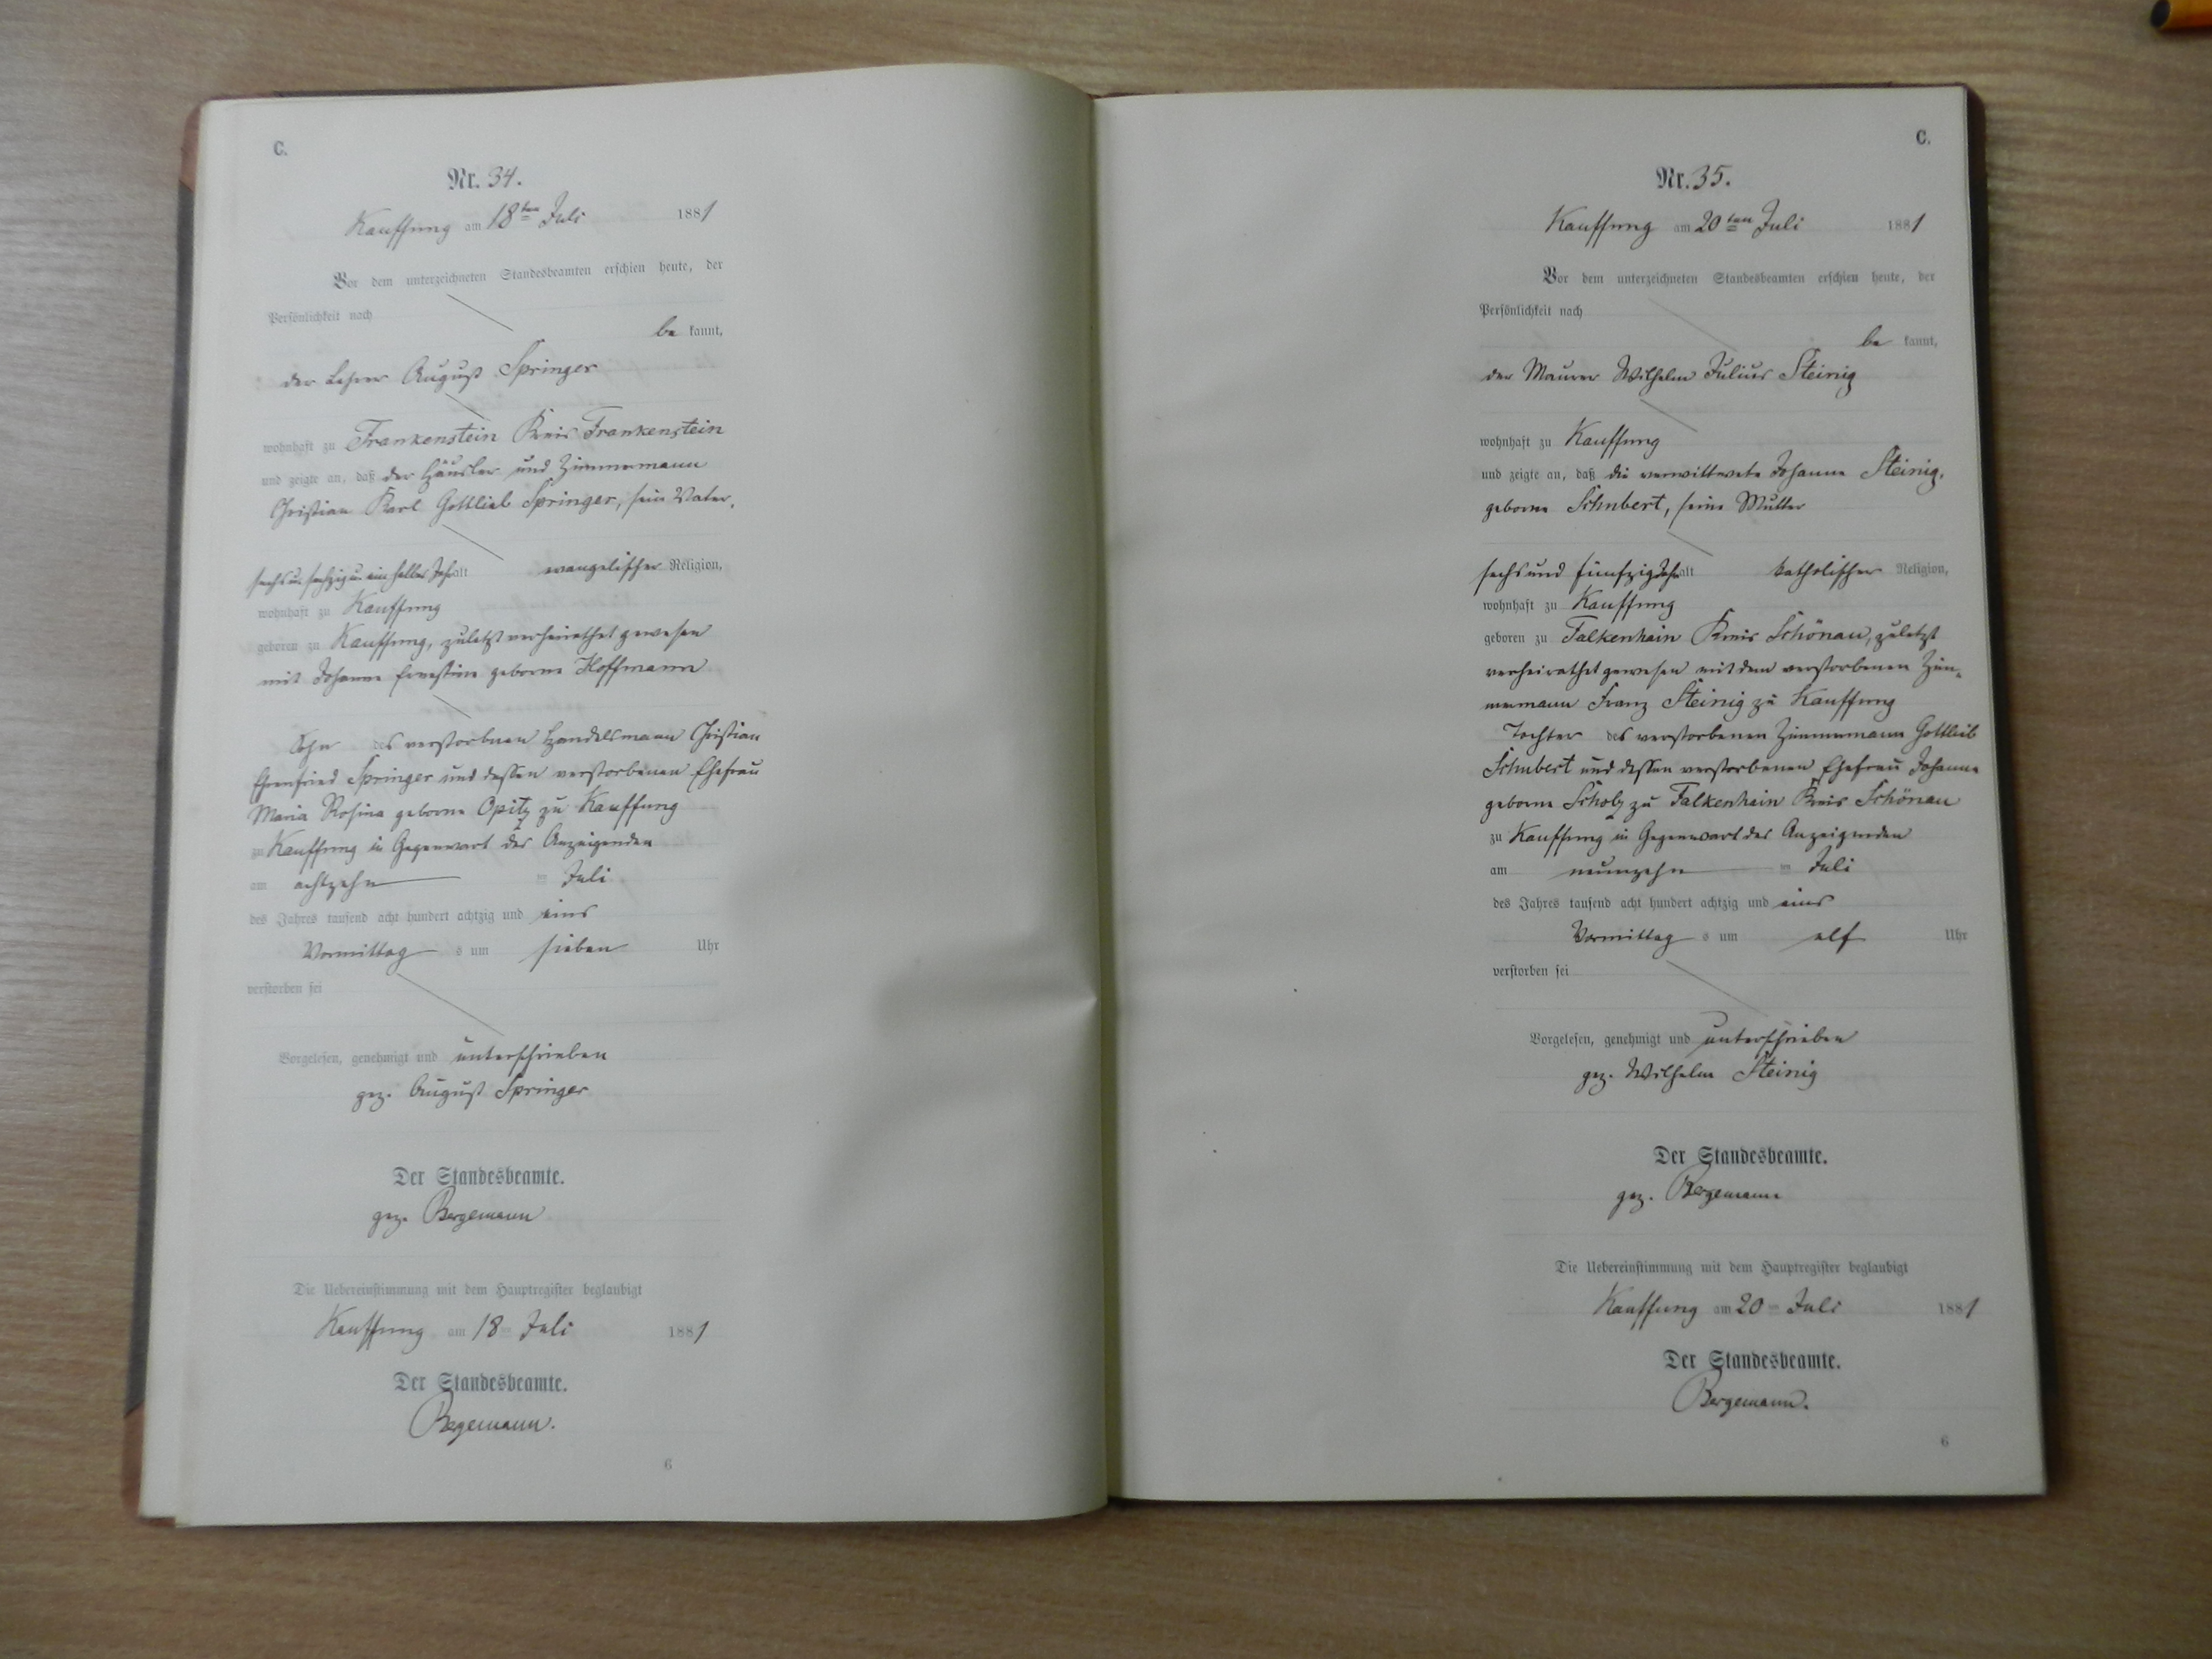 C.
Nr. 34.
Kauffung am 18ten Juli 1881
Vor dem unterzeichneten Standesbeamten erschien heute, der
Persönlichkeit nach
be kannt,
der Lehrer August Springer
wohnhaft zu Frankenstein Kreis Frankenstein
und zeigte an, daß der Häusler und Zimmermann
Christian Karl Gottlieb Springer, sein Vater,
sechs u. sechzig u. ein halbes Jahr alt evangelischer Religion,
wohnhaft zu Kauffung
geboren zu Kauffung, zuletzt verheirathet gewesen
mit Johanne Ernestine geborne Hoffmann
Sohn des verstorbnen Handelsmann Christian
Ehrenfried Springer und dessen verstorbenen Ehefrau
Maria Rosina geborne Opitz zu Kauffung
zu Kauffung in Gegenwart des Anzeigenden
am achtzehn ten Juli
des Jahres tausend acht hundert achtzig und eins
Vormittag s um sieben Uhr
verstorben sei
Vorgelesen, genehmigt und unterschrieben
gez. August Springer
Der Standesbeamte.
gez. Bergemann
Die Uebereinstimmung mit dem Hauptregister beglaubigt
Kauffung am 18 ten Juli 1881
Der Standesbeamte.
Bergemann.
6
C.
Nr. 35.
Kauffung am 20ten Juli 1881
Vor dem unterzeichneten Standesbeamten erschien heute, der
Persönlichkeit nach
be kannt,
der Maurer Wilhelm Julius Steinig
wohnhaft zu Kauffung
und zeigte an, daß die verwittwete Johanne Steinig,
geborne Schubert, seine Mutter
sechs und fünfzig Jahr alt katholischer Religion,
wohnhaft zu Kauffung
geboren zu Falkenhain Kreis Schönau, zuletzt
verheirathet gewesen mit dem verstorbenen Zim-
mermann Franz Steinig zu Kauffung
Tochter des verstorbenen Zimmermann Gottlieb
Schubert und dessen verstorbenen Ehefrau Johanne
geborne Scholz zu Falkenhain Kreis Schönau
zu Kauffung in Gegenwart des Anzeigenden
am neunzehn ten Juli
des Jahres tausend acht hundert achtzig und eins
Vormittag s um elf Uhr
verstorben sei
Vorgelesen, genehmigt und unterschrieben
gez. Wilhelm Steinig
Der Standesbeamte.
gez. Bergemann
Die Uebereinstimmung mit dem Hauptregister beglaubigt
Kauffung am 20 ten Juli 1881
Der Standesbeamte.
Bergemann.
6